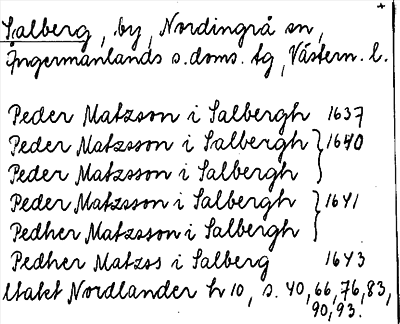 Salberg, by, Nordingrå sn,
Ångermanlands s. doms. tg, Västern. l.
Peder Matzson i Salbergh 1637
Peder Matzsson i Salbergh } 1640
Peder Matzsson i Salbergh
Peder Matzsson i Salbergh } 1641
Pedher Matzsson i Salbergh
Pedher Matzss i Salberg 1643
Utakt Nordlander h 10, s. 40, 66, 76, 83,
90, 93.